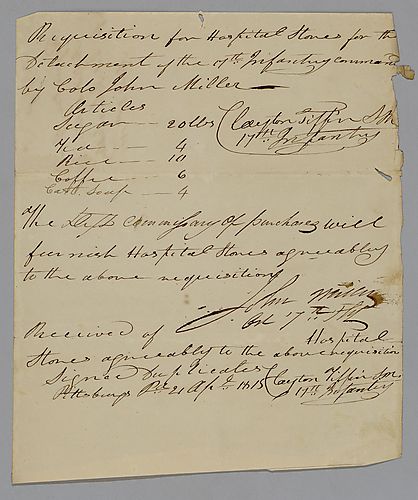 Requisition for Hospital Stores for the
Detachment of the 17th Infantry command
by Colo John Miller
Articles
Sugar 20 lbs Clayton Tiffin S M
Tea 4 17th Infantry
Rice 10
Coffee 6
Cast. Soap 4
The Commissary of purchases will
furnish Hospital Stores agreeably
to the above requisition
John Miller
Col 17th Inf
Received of Hospital
Stores agreeably to the above requisition
Signed Duplicates Clayton Tiffin
Pittsburgh Pa 21 Apl 1815 17th Infantry